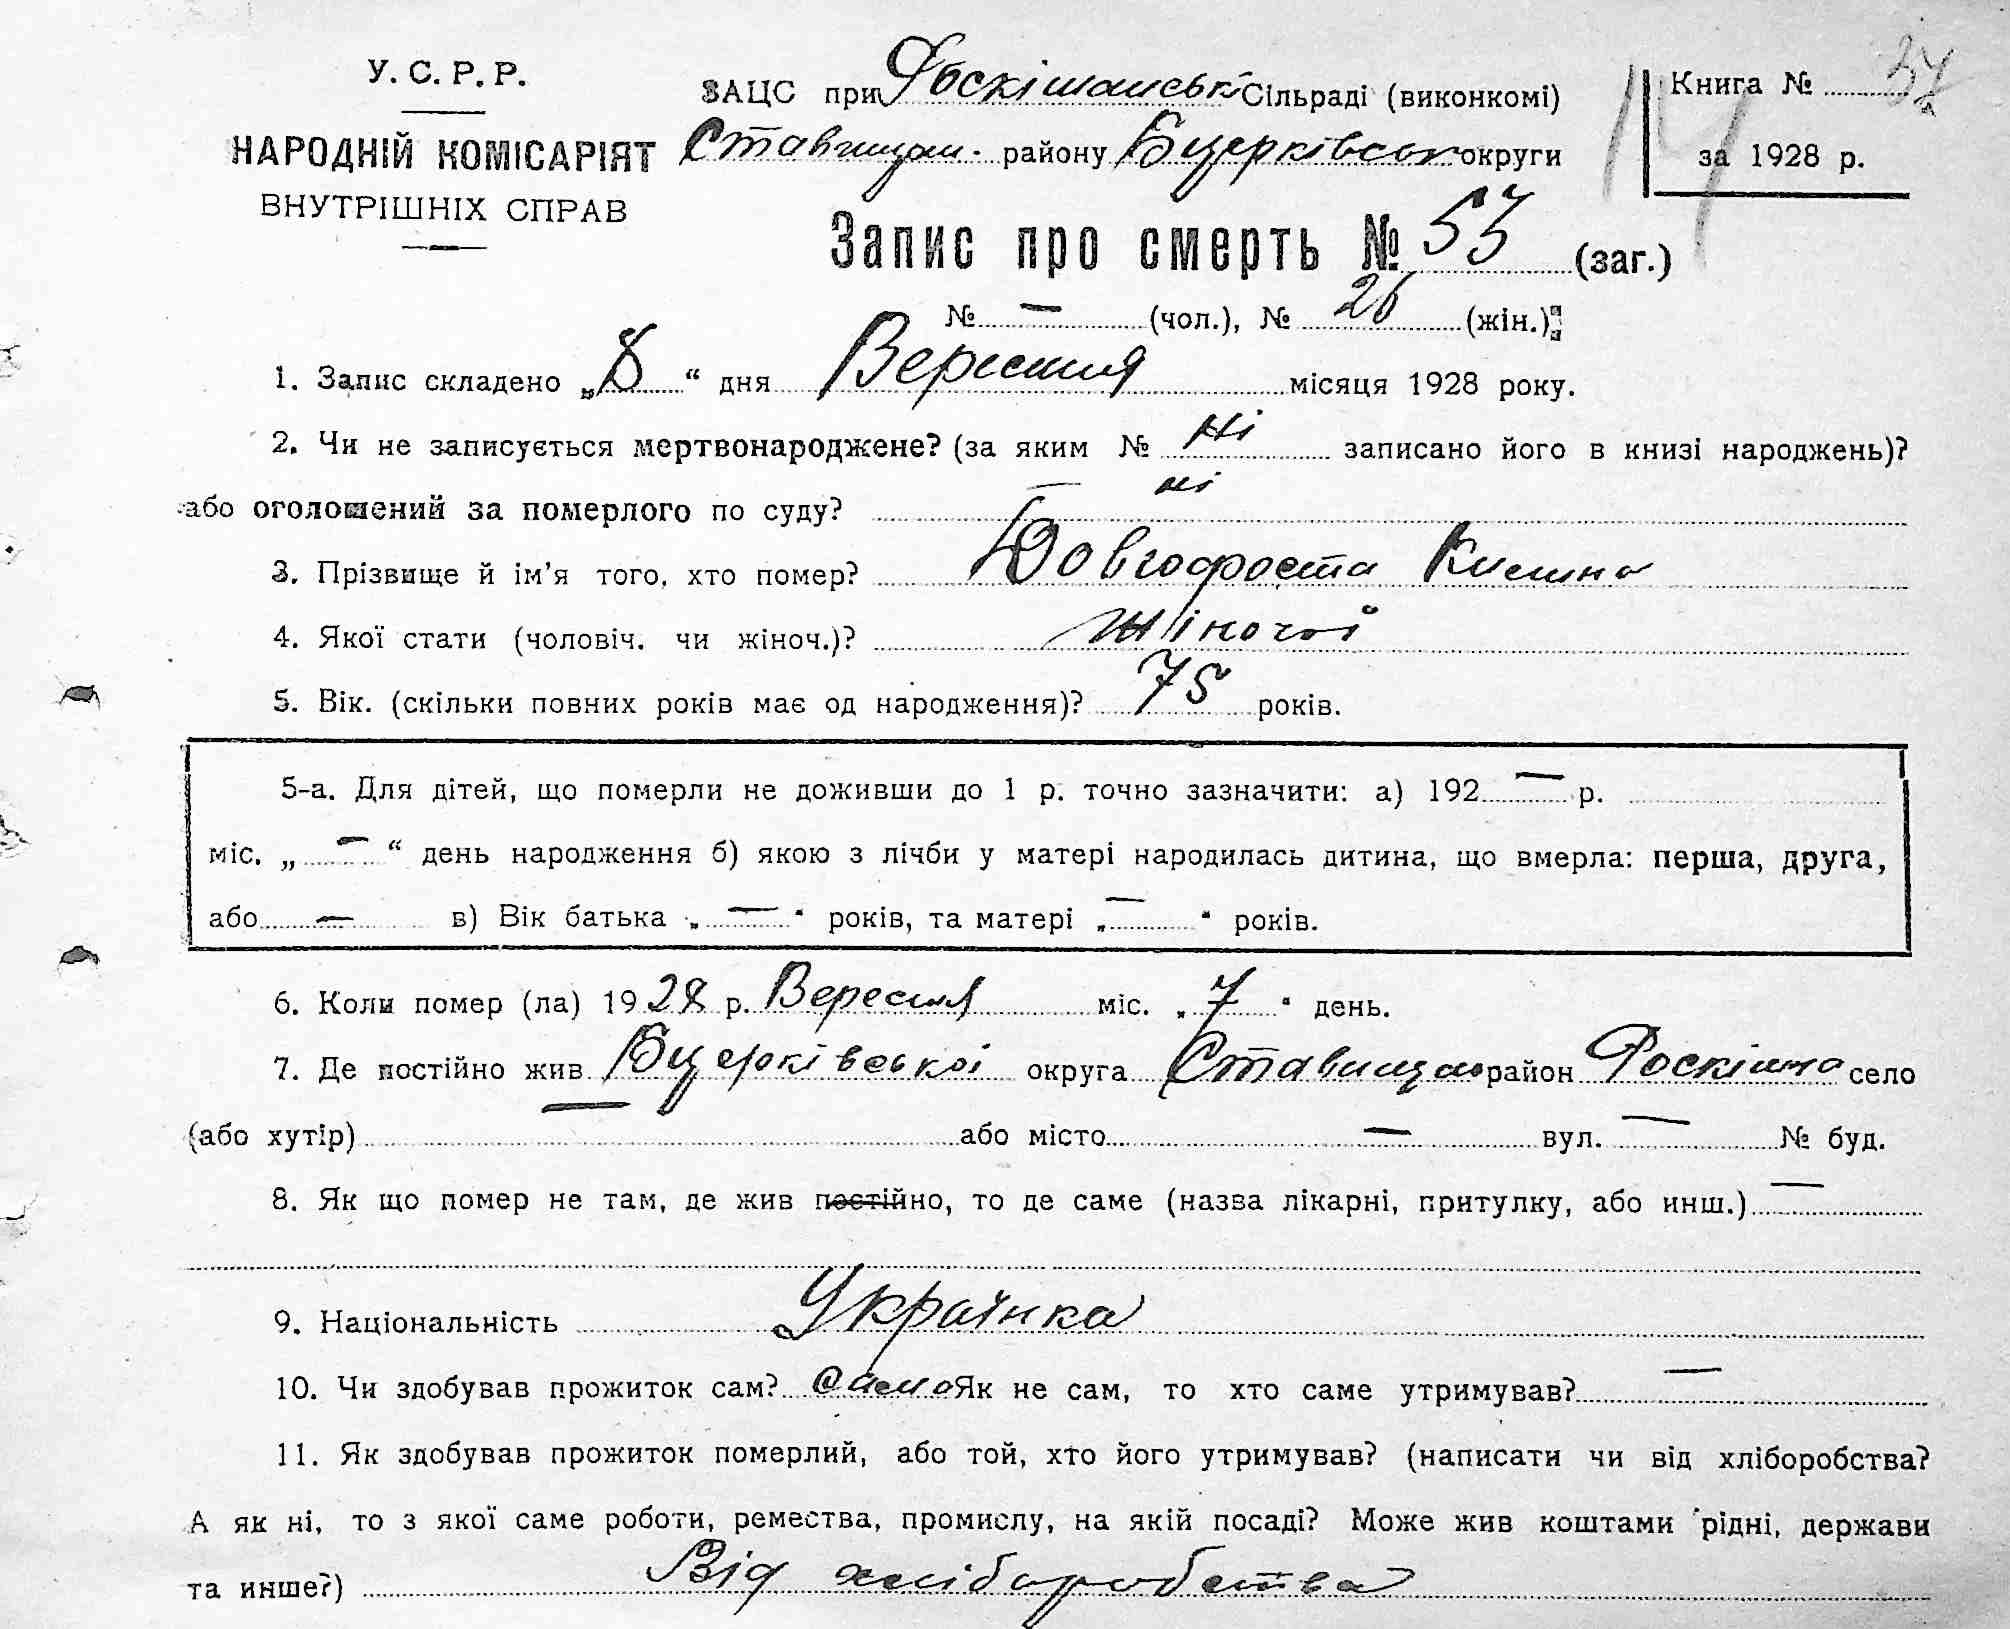 У. С. Р. Р.
НАРОДНІЙ КОМІСАРІЯТ
ВНУТРІШНІХ СПРАВ
ЗАЦС при Роскішанській Сільраді (виконкомі)
Ставищан. району Бцерківськ округи
Книга № 37
за 1928 р.
14
Запис про смерть № 53 (заг.)
№ — (чол.), № 26 (жін.)
1. Запис складено „8“ дня Вересня місяця 1928 року.
2. Чи не записується мертвонароджене? (за яким № ні записано його в книзі народжень)?
або оголошений за померлого по суду? ні
3. Прізвище й ім’я того, хто помер? Довгофоста
4. Якої стати (чоловіч. чи жіноч.)? Жіночої
5. Вік. (скільки повних років має од народження)? 75 років.
5-а. Для дітей, що померли не доживши до 1 р. точно зазначити: а) 192 — р.
міс. „ — “ день народження б) якою з лічби у матері народилась дитина, що вмерла: перша, друга,
або — в) Вік батька „ — “ років, та матері „ — “ років.
6. Коли помер (ла) 1928 р. Вересня міс. „7“ день.
7. Де постійно жив Бцерківської округа Ставищан район Роскішна село
(або хутір) — або місто — вул. — № буд.
8. Як що помер не там, де жив постійно, то де саме (назва лікарні, притулку, або инш.) —
9. Національність Українка
10. Чи здобував прожиток сам? Сама Як не сам, то хто саме утримував? —
11. Як здобував прожиток померлий, або той, хто його утримував? (написати чи від хліборобства?
А як ні, то з якої саме роботи, ремества, промислу, на якій посаді? Може жив коштами рідні, держави
та инше?) Від хліборобства